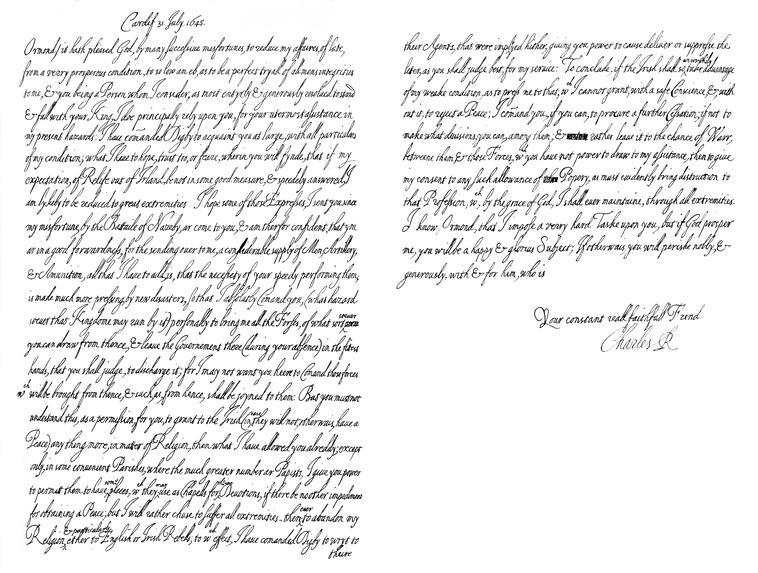 Cardif 31. July. 1645.
Ormond, it hath pleased God, by many successive misfortunes, to reduce my affaires, of late,
from a verry prosperous condition, to so low an eb, as to be a perfect tryall of all mens integrities
to me, & you being a Person whom I consider, as most entyrely & generously resolved to stand
& fall with your King, I doe principally rely upon you, for your uttermost assistance, in
my present hazards: I have comanded Digby to acquaint you at large, with all particulars
of my condition; what I have to hope, trust too, or feare, wherin you will fynde, that if my
expectation, of Relife out of Irland, be not in some good measure, & speedely answered, I
am lykely to be reduced to great extremities. I hope some of those Expresses, I sent you, since
my misfortune, by the Bataile of Nazeby, ar come to you, & am therfor confident that you
ar in a good forwardness, for the sending over to me, a considerable supply of Men, Artillery,
& Amunition, all that I have to add, is, that the necessety of your speedy performing them,
is made much more pressing by new disasters, so that I absolutly Comand you, (what hazard
soever that Kingdome may run by it) personally to bring me all the Forses, of what sort soever
you can draw from thence, & leave the Governement there (during your absence) in the fittest
hands, that you shall judge, to discharge it; for I may not want you heere to Comand those forces
wch will be brought from thence, & such as, from hence, shall be joyned to them: But you must not
understand this, as a permission, for you, to grant to the Irish (in case they will not, otherwais, have a
Peace) any thing more, in matter of Religion, than what I have allowed you alreddy; except
only, in some convenient Parishes, where the much greater number ar Papists, I give you power
to permitt them to have some places, wch they may use as Chapels for Devotions, if there be no other impediment
for obtaining a Peace; but I will rather chuse to suffer all extremities, then ever to abandon my
Religion, & particularly ether to English or Irish Rebels, to wch effect, I have comanded Digby to wryt to
theire
their Agents, that were imployed hither, giving you power to cause deliver or suppresse the
letter, as you shall judge best, for my service: To conclude, if the Irish shall so unworthily take advantage
of my weake condition, as to press me to that, wch I cannot grant, with a safe Conscience, & with
out it, to reject a Peace; I comand you, if you can, to procure a further Cessation; if not to
make what divisions you can, among them; & rather leave it to the chance of Warr,
betweene them, & those Forces, wch you have not power to draw to my assistance, then to give
my consent to any such allowance of Popery, as must evidently bring destruction to
that Profession, wch, by the grace of God, I shall ever maintaine, through all extremities:
I know, Ormond, that I impose a verry hard Taske upon you, but if God prosper
me, you will be a happy & glorius Subject; If otherwais, you will perishe nobly, &
generously, with & for him, who is
Your constant reall faithfull Frend
Charles R